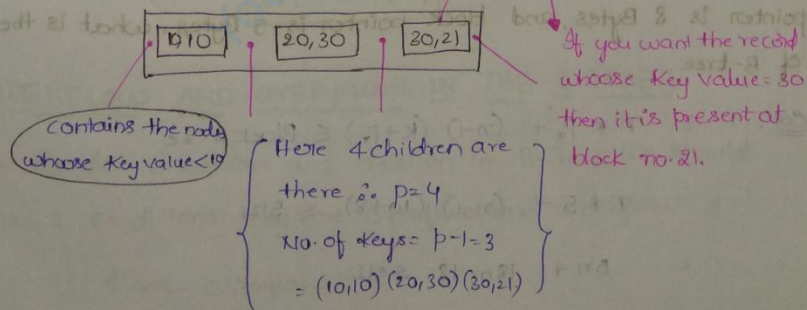 10,10 20,30 30,21
If you want the record
whoose key value=30
then it is present at
block no. 21.
contains the node
whoose key value<10
Here 4 children are
there ∴ p=4
No. of keys= p-1=3
= (10,10) (20,30) (30,21)